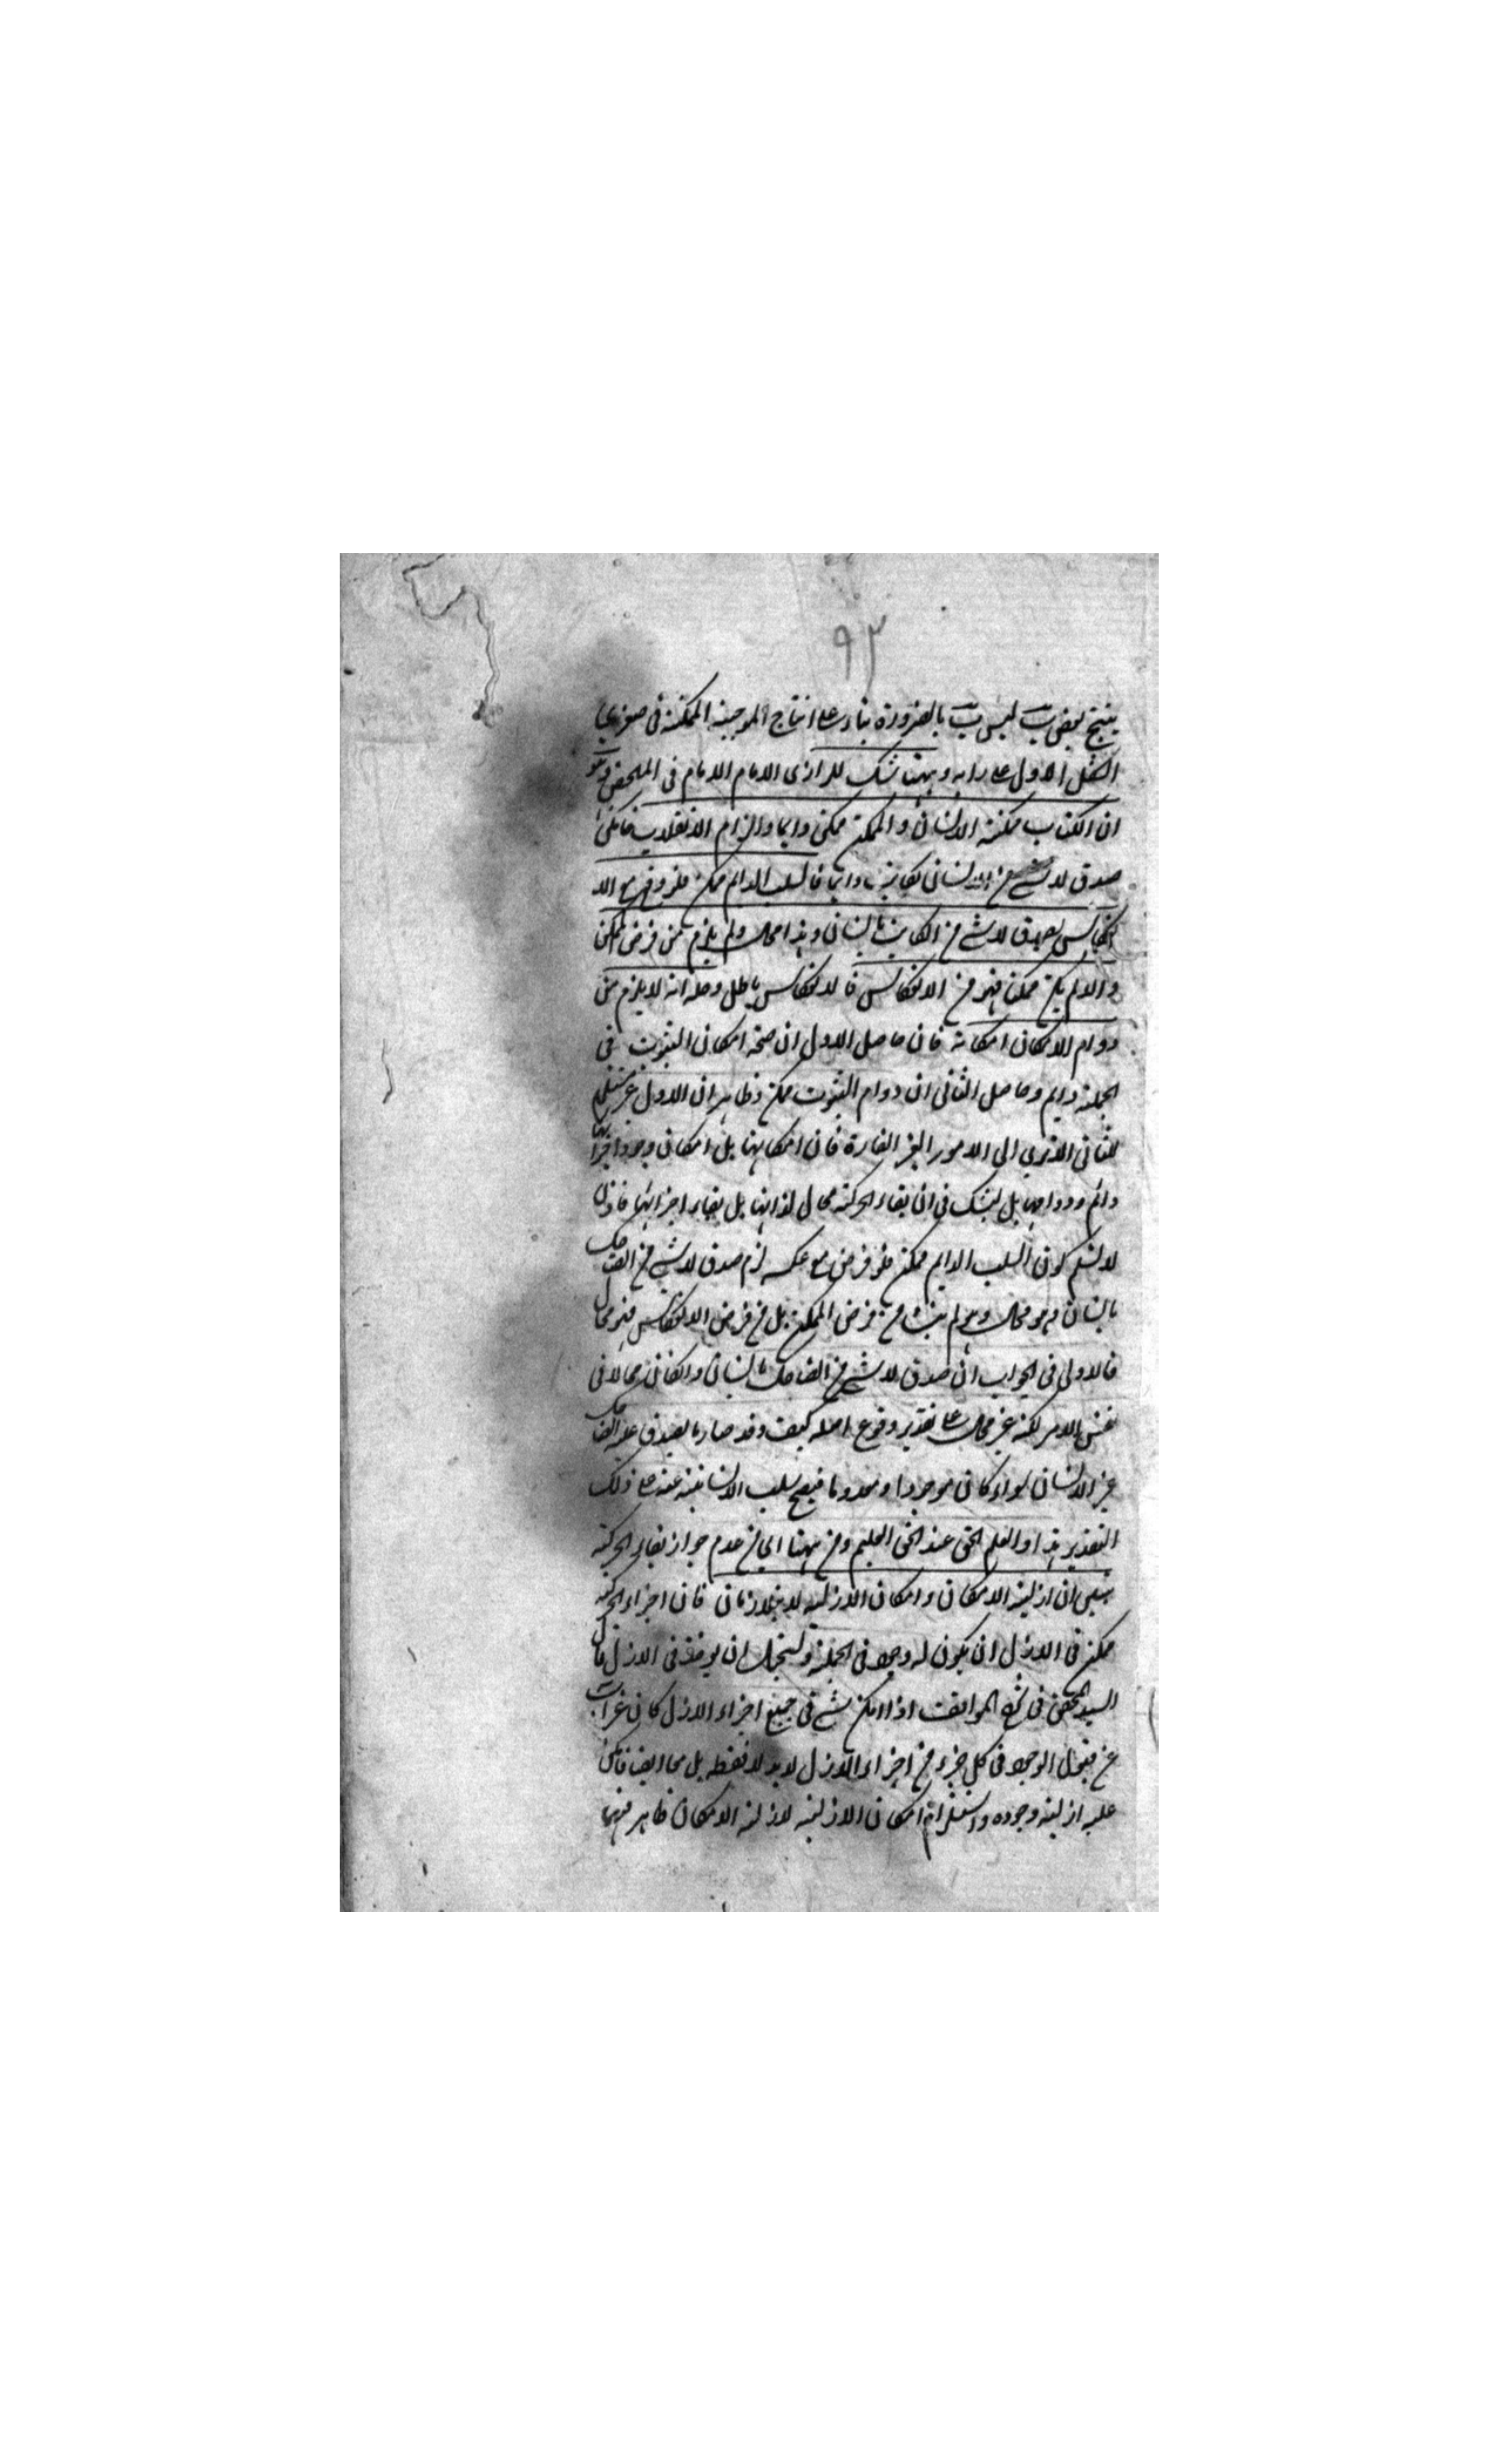 ٩٣
ينتج بعض ب ليس ب بالضرورة بناء على انتاج الموجبة الممكنة في صغرى
الشكل الاول على رايه وههنا شك للرازى الامام الامام في الملخص وهو
ان الكتاب ممكنة الانسان والممكن ممكن دايما والزام الانقلاب فامكن
صدق لا شئ من الانسان بكاتب دايما فالسلب الدايم ممكن فلو فرض مع الا
نعكاس لصدق لا شئ من الكاتب بانسان وهذا محال ولم يلزم من فرض الممكن
والا لم يكن ممكنا فهو من الانعكاس فالانعكاس باطل وحله انه لا يلزم من
دوام الامكان امكانه فان حاصل الاول ان صحة امكان الثبوت في
الجملة دايم وحاصل الثاني ان دوام الثبوت ممكن وظاهر ان الاول غير مستلزم
للثاني الا ترى الى الامور الغير القارة فان امكانها بل امكان وجود اجزائها
دائم ودوامها بل ليشك في ان بقاء الحركة محال لذاتها بل بقاء اجزائها فاذن
لا نسلم كون السلب الدايم ممكن فلو فرض مع عكسه لزم صدق لا شئ من الضاحك
بانسان وهو محال وهو لم ينشأ من فرض الممكن بل من فرض الانعكاس فهو محال
فالاولى في الجواب ان صدق لا شئ من الضاحك بانسان وان كان محالا في
نفس الامر لكنه غير محال على تقدير وقوع اصله كيف وقد صار ما يصدق عليه الضاحك
غير الانسان سواء كان موجودا او معدوما فيصح سلب الانسانية عنه على ذلك
التقدير هذا والعلم الحق عند الحق العليم ومن ههنا اى من عدم جواز بقاء الحركة
يتبين ان ازلية الامكان وامكان الازلية لا يتلازمان فان اجزاء الحركة
ممكن في الازل ان يكون له وجود في الجملة ويستحيل ان يوجد في الازل قال
السيد المحقق في شرح المواقف اذا امكن شئ في جميع اجزاء الازل كان غير آب
عن قبول الوجود في كل جزء من اجزاء الازل لا بدلا فقط بل معا ايضا فامكن
عليه ازلية وجوده واستلزام امكان الازلية لازلية الامكان ظاهر فهما